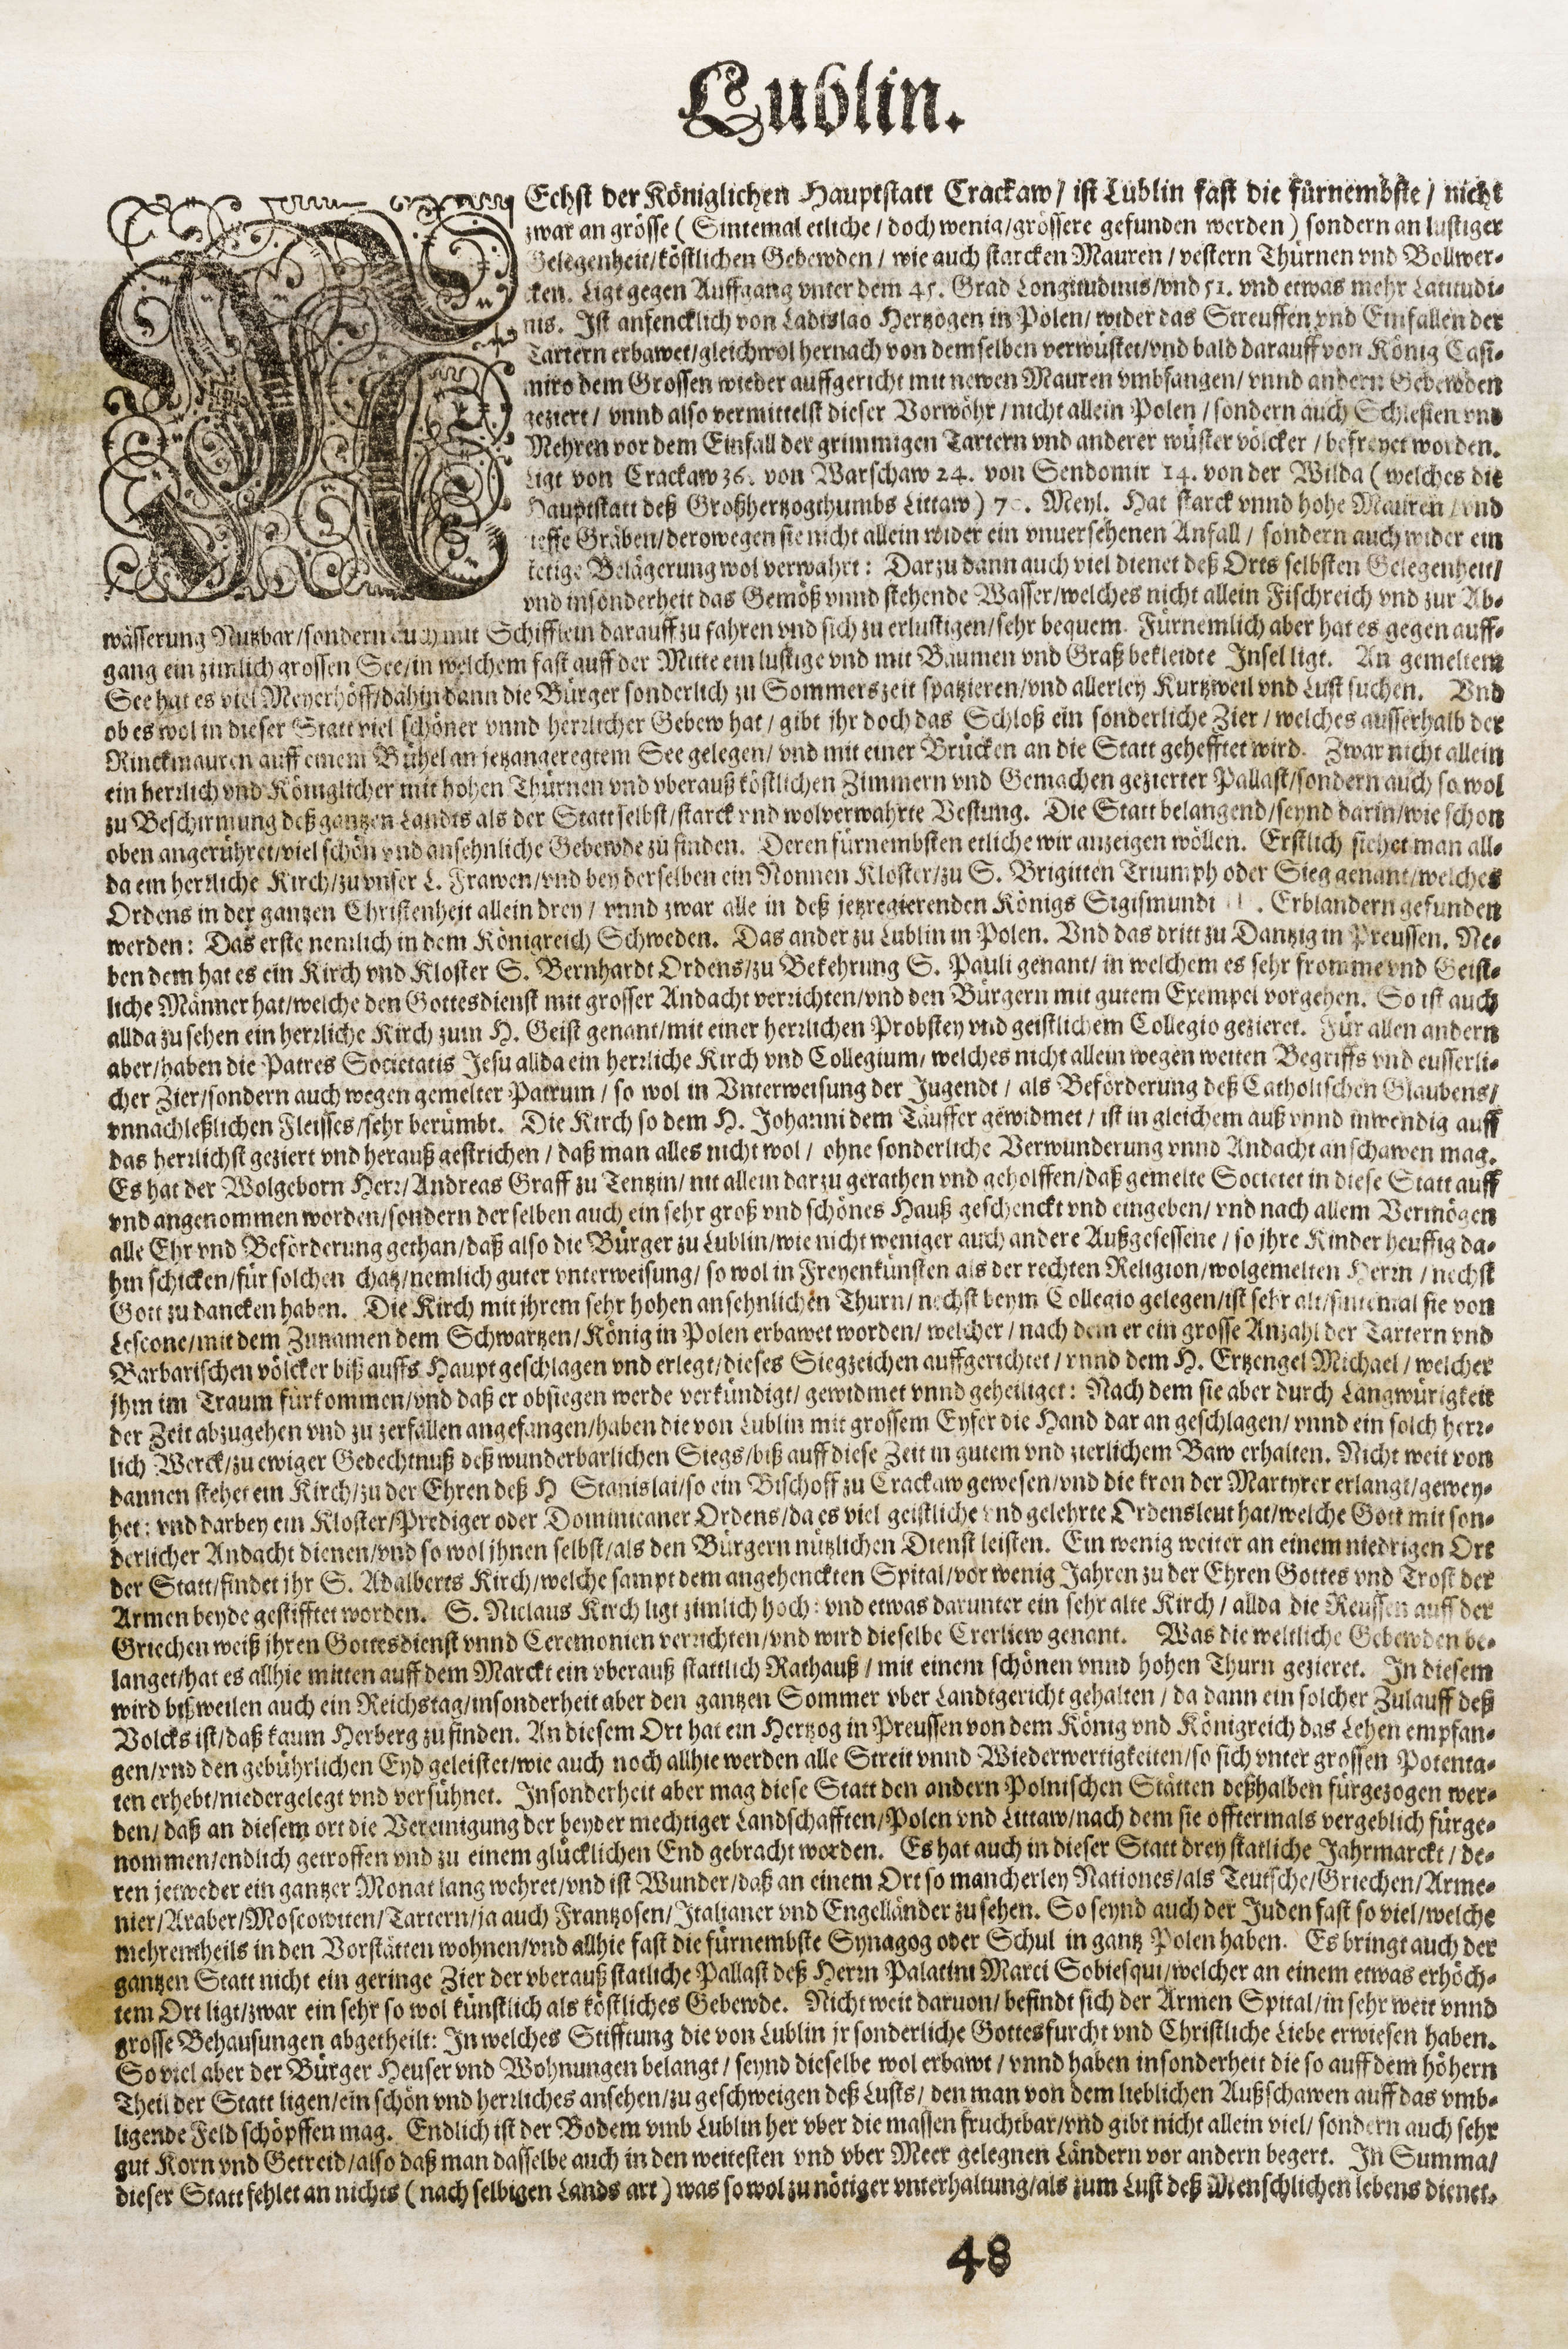 Lublin.
NEchst der Königlichen Hauptstatt Crackaw / ist Lublin fast die fürnembste / nicht
zwar an grösse ( Sintemal etliche / doch wenig/grössere gefunden werden ) sondern an lustiger
Gelegenheit/köstlichen Gebewden / wie auch starcken Mauren / vestern Thürnen vnd Bollwer-
cken. Ligt gegen Auffgang vnter dem 45. Grad Longitudinis/vnd 51. vnd etwas mehr Latitudi-
nis. Ist anfencklich von Ladislao Hertzogen in Polen/ wider das Streuffen vnd Einfallen der
Tartern erbawet/gleichwol hernach von demselben verwüstet/vnd bald darauff von König Casi-
miro dem Grossen wieder auffgericht mit newen Mauren vmbfangen/ vnnd andern Gebewden
geziert / vnnd also vermittelst dieser Vorwöhr / nicht allein Polen / sondern auch Schlesien vnd
Mehren vor dem Einfall der grimmigen Tartern vnd anderer wüster völcker / befreyet worden.
Ligt von Crackaw 36. von Warschaw 24. von Sendomir 14. von der Wilda ( welches die
Hauptstatt deß Großhertzogthumbs Littaw ) Meyl. Hat starck vnnd hohe Mauren / vnd
tieffe Gräben/derowegen sie nicht allein wider ein vnuersehenen Anfall / sondern auch wider ein
stetige Belägerung wol verwahrt : Darzu dann auch viel dienet deß Orts selbsten Gelegenheit/
vnd insonderheit das Gemöß vnnd stehende Wasser/welches nicht allein Fischreich vnd zur Ab-
wässerung Nutzbar/sondern auch mit Schifflein darauff zu fahren vnd sich zu erlustigen/sehr bequem. Fürnemlich aber hat es gegen auff-
gang ein zimlich grossen See/in welchem fast auff der Mitte ein lustige vnd mit Bäumen vnd Graß bekleidte Insel ligt. An gemeltem
See hat es viel Meyerhöff/dahin dann die Bürger sonderlich zu Sommerszeit spatzieren/vnd allerley Kurtzweil vnd Lust suchen. Vnd
ob es wol in dieser Statt viel schöner vnnd herrlicher Gebew hat / gibt ihr doch das Schloß ein sonderliche Zier / welches ausserhalb der
Rinckmauren auff einem Bühel an jetzangeregtem See gelegen/ vnd mit einer Brücken an die Statt gehefftet wird. Zwar nicht allein
ein herrlich vnd Königlicher mit hohen Thürnen vnd vberauß köstlichen Zimmern vnd Gemachen gezierter Pallast/sondern auch so wol
zu Beschirmung deß gantzen Landts als der Statt selbst/starck vnd wolverwahrte Vestung. Die Statt belangend/seynd darin/wie schon
oben angerühret/viel schön vnd ansehnliche Gebewde zu finden. Deren fürnembsten etliche wir anzeigen wöllen. Erstlich siehet man all-
da ein herrliche Kirch/zu vnser L. Frawen/vnd bey derselben ein Nonnen Kloster/zu S. Brigitten Triumph oder Sieg genant/welches
Ordens in der gantzen Christenheit allein drey / vnnd zwar alle in deß jetzregierenden Königs Sigismundi . Erblandern gefunden
werden : Das erste nemlich in dem Königreich Schweden. Das ander zu Lublin in Polen. Vnd das dritt zu Dantzig in Preussen. Ne-
ben dem hat es ein Kirch vnd Kloster S. Bernhardt Ordens/zu Bekehrung S. Pauli genant/ in welchem es sehr fromme vnd Geist-
liche Männer hat/welche den Gottesdienst mit grosser Andacht verrichten/vnd den Bürgern mit gutem Exempel vorgehen. So ist auch
allda zu sehen ein herrliche Kirch zum H. Geist genant/mit einer herrlichen Probstey vnd geistlichem Collegio gezieret. Für allen andern
aber/haben die Patres Societatis Jesu allda ein herrliche Kirch vnd Collegium/ welches nicht allein wegen weiten Begriffs vnd eusserli-
cher Zier/sondern auch wegen gemelter Patrum / so wol in Vnterweisung der Jugendt / als Beförderung deß Catholischen Glaubens/
vnnachleßlichen Fleisses/sehr berümbt. Die Kirch so dem H. Johanni dem Täuffer gewidmet / ist in gleichem auß vnnd inwendig auff
das herrlichst geziert vnd herauß gestrichen / daß man alles nicht wol / ohne sonderliche Verwunderung vnnd Andacht anschawen mag.
Es hat der Wolgeborn Herr/Andreas Graff zu Tentzin/ nit allein darzu gerathen vnd geholffen/daß gemelte Societet in diese Statt auff
vnd angenommen worden/sondern derselben auch ein sehr groß vnd schönes Hauß geschenckt vnd eingeben/ vnd nach allem Vermögen
alle Ehr vnd Beförderung gethan/daß also die Bürger zu Lublin/wie nicht weniger auch andere Außgesessene / so jhre Kinder heuffig da-
hin schicken/für solchen chatz/nemlich guter vnterweisung/ so wol in Freyenkünsten als der rechten Religion/wolgemelten Herrn / nechst
Gott zu dancken haben. Die Kirch mit ihrem sehr hohen ansehnlichen Thurn/ nechst beym Collegio gelegen/ist sehr alt/sintemal sie von
Lescone/mit dem Zunamen dem Schwartzen/König in Polen erbawet worden/ welcher / nach dem er ein grosse Anzahl der Tartern vnd
Barbarischen völcker biß auffs Haupt geschlagen vnd erlegt/dieses Siegzeichen auffgerichtet / vnnd dem H. Ertzengel Michael / welcher
jhm im Traum fürkommen/vnd daß er obsiegen werde verkündigt/ gewidmet vnnd geheiliget : Nach dem sie aber durch Langwürigkeit
der Zeit abzugehen vnd zu zerfallen angefangen/haben die von Lublin mit grossem Eyfer die Hand daran geschlagen/ vnnd ein solch herr-
lich Werck/zu ewiger Gedechtnuß deß wunderbarlichen Siegs/biß auff diese Zeit in gutem vnd zierlichem Baw erhalten. Nicht weit von
dannen stehet ein Kirch/zu der Ehren deß H Stanislai/so ein Bischoff zu Crackaw gewesen/vnd die kron der Martyrer erlangt/gewey-
het : vnd darbey ein Kloster/Prediger oder Dominicaner Ordens/da es viel geistliche vnd gelehrte Ordensleut hat/welche Gott mit son-
derlicher Andacht dienen/vnd so wol jhnen selbst/als den Bürgern nützlichen Dienst leisten. Ein wenig weiter an einem niedrigen Ort
der Statt/findet ihr S. Adalberts Kirch/welche sampt dem angehenckten Spital/vor wenig Jahren zu der Ehren Gottes vnd Trost der
Armen beyde gestifftet worden. S. Niclaus Kirch ligt zimlich hoch : vnd etwas darunter ein sehr alte Kirch / allda die Reussen auff der
Griechen weiß jhren Gottesdienst vnnd Ceremonien verrichten/vnd wird dieselbe Crerliew genant. Was die weltliche Gebewden be-
langet/hat es allhie mitten auff dem Marckt ein vberauß stattlich Rathauß / mit einem schönen vnnd hohen Thurn gezieret. In diesem
wird bißweilen auch ein Reichstag/insonderheit aber den gantzen Sommer vber Landtgericht gehalten / da dann ein solcher Zulauff deß
Volcks ist/daß kaum Herberg zu finden. An diesem Ort hat ein Hertzog in Preussen von dem König vnd Königreich das Lehen empfan-
gen/vnd den gebührlichen Eyd geleistet/wie auch noch allhie werden alle Streit vnnd Wiederwertigkeiten/so sich vnter grossen Potenta-
ten erhebt/niedergelegt vnd versühnet. Insonderheit aber mag diese Statt den andern Polnischen Stätten deßhalben fürgezogen wer-
den/ daß an diesem ort die Vereinigung der beyder mechtiger Landschafften/Polen vnd Littaw/nach dem sie offtermals vergeblich fürge-
nommen/endlich getroffen vnd zu einem glücklichen End gebracht worden. Es hat auch in dieser Statt drey statliche Jahrmarckt / de-
ren jetweder ein gantzer Monat lang wehret/vnd ist Wunder/daß an einem Ort so mancherley Nationes/als Teutsche/Griechen/Arme-
nier/Araber/Moscowiten/Tartern/ja auch Frantzosen/Italianer vnd Engelländer zu sehen. So seynd auch der Juden fast so viel/welche
mehrentheils in den Vorstätten wohnen/vnd allhie fast die fürnembste Synagog oder Schul in gantz Polen haben. Es bringt auch der
gantzen Statt nicht ein geringe Zier der vberauß statliche Pallast deß Herrn Palatini Marci Sobiesqui/welcher an einem etwas erhöch-
tem Ort ligt/zwar ein sehr so wol künstlich als köstliches Gebewde. Nicht weit daruon/ befindt sich der Armen Spital/in sehr weit vnnd
grosse Behausungen abgetheilt: In welches Stifftung die von Lublin jr sonderliche Gottesfurcht vnd Christliche Liebe erwiesen haben.
So viel aber der Bürger Heuser vnd Wohnungen belangt / seynd dieselbe wol erbawt / vnnd haben insonderheit die so auff dem höhern
Theil der Statt ligen/ein schön vnd herrliches ansehen/zu geschweigen deß Lusts/ den man von dem lieblichen Außschawen auff das vmb-
ligende Feld schöpffen mag. Endlich ist der Bodem vmb Lublin her vber die massen fruchtbar/vnd gibt nicht allein viel/ sondern auch sehr
gut Korn vnd Getreid/also daß man dasselbe auch in den weitesten vnd vber Meer gelegnen Ländern vor andern begert. In Summa/
dieser Statt fehlet an nichts ( nach selbigen Lands art ) was so wol zu nötiger vnterhaltung/als zum Lust deß Menschlichen lebens dienet.
48